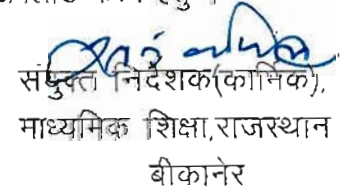 संयुक्त निदेशक(कार्मिक),
माध्यमिक शिक्षा,राजस्थान
बीकानेर